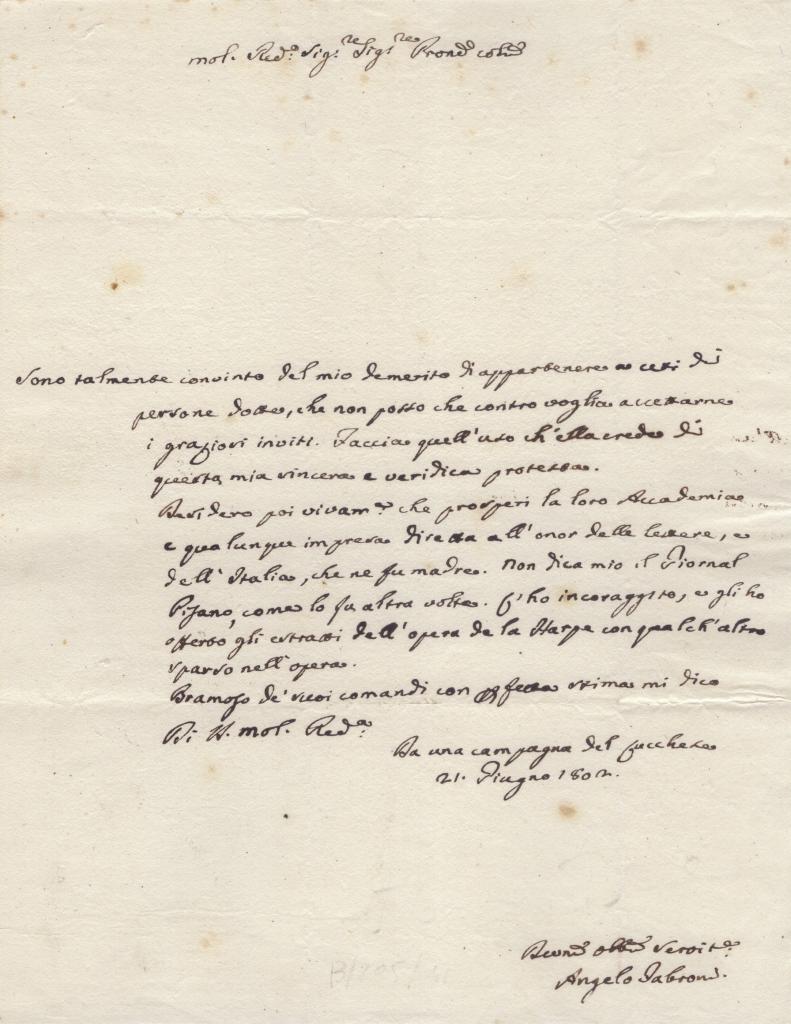 mol. Red.º Sig.re Sig.re Pron.e col.o
Sono talmente convinto del mio demerito di appartenere a ceti di
persone dotte, che non posso che contro voglia accettarne
i graziosi inviti. Faccia quell'uso ch'ella crede di
questa mia sincera e veridica protesta.
Desidero poi vivam.e che prosperi la loro Accademia
e qualunque impresa diretta all'onor delle lettere, e
dell'Italia, che ne fu madre. Non dica mio il Giornal
Pisano, come lo fu altra volta. L'ho incoraggito, e gli ho
offerto gli estratti dell'opera de la Harpe con qualch'altro
sparso nell'opera.
Bramoso de' suoi comandi con perfetta stima mi dico
Di V. mol. Red.a
Da una campagna del Lucchese
21. Giugno 1802.
obb.o Servit.e
Angelo Fabroni.